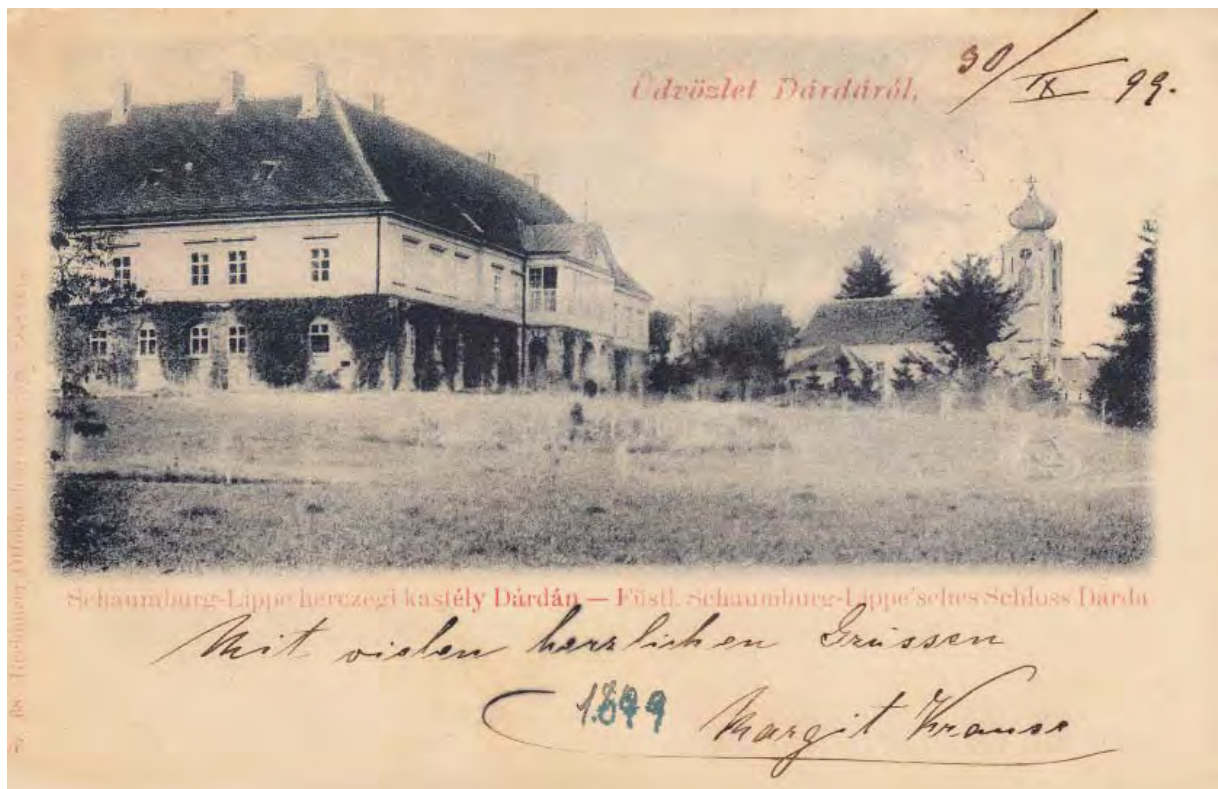 Üdvözlet Dárdáról,
30/IX 99.
Schaumburg-Lippe herczegi kastély Dárdán — Füstl. Schaumburg-Lippe'sches Schloss Darda
Mit vielen herzlichen Grüssen
1899
Margit Krause